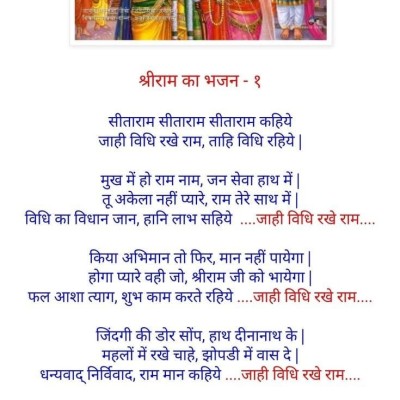 श्रीराम का भजन - १
सीताराम सीताराम सीताराम कहिये
जाही विधि रखे राम, ताहि विधि रहिये |
मुख में हो राम नाम, जन सेवा हाथ में |
तू अकेला नहीं प्यारे, राम तेरे साथ में |
विधि का विधान जान, हानि लाभ सहिये ....जाही विधि रखे राम....
किया अभिमान तो फिर, मान नहीं पायेगा |
होगा प्यारे वही जो, श्रीराम जी को भायेगा |
फल आशा त्याग, शुभ काम करते रहिये ....जाही विधि रखे राम....
जिंदगी की डोर सोंप, हाथ दीनानाथ के |
महलों में रखे चाहे, झोपडी में वास दे |
धन्यवाद् निर्विवाद, राम मान कहिये ....जाही विधि रखे राम....